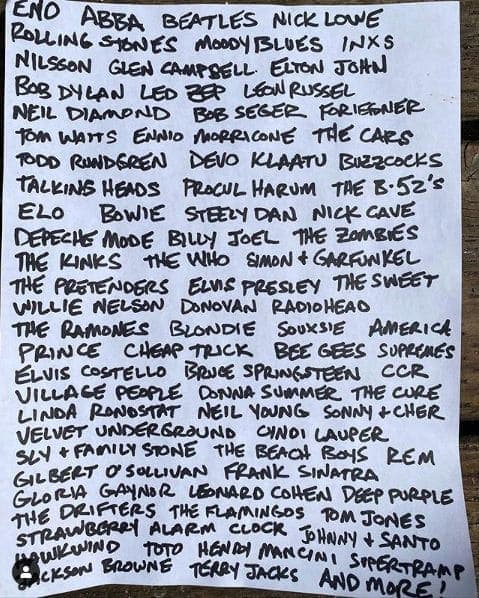 ENO ABBA BEATLES NICK LOWE
ROLLING STONES MOODY BLUES INXS
NILSSON GLEN CAMPBELL ELTON JOHN
BOB DYLAN LED ZEP LEON RUSSEL
NEIL DIAMOND BOB SEGER FORIEGNER
TOM WAITS ENNIO MORRICONE THE CARS
TODD RUNDGREN DEVO KLAATU BUZZCOCKS
TALKING HEADS PROCUL HARUM THE B-52'S
ELO BOWIE STEELY DAN NICK CAVE
DEPECHE MODE BILLY JOEL THE ZOMBIES
THE KINKS THE WHO SIMON + GARFUNKEL
THE PRETENDERS ELVIS PRESLEY THE SWEET
WILLIE NELSON DONOVAN RADIOHEAD
THE RAMONES BLONDIE SOUXSIE AMERICA
PRINCE CHEAP TRICK BEE GEES SUPREMES
ELVIS COSTELLO BRUCE SPRINGSTEEN CCR
VILLAGE PEOPLE DONNA SUMMER THE CURE
LINDA RONDSTAT NEIL YOUNG SONNY + CHER
VELVET UNDERGROUND CYNDI LAUPER
SLY + FAMILY STONE THE BEACH BOYS REM
GILBERT O'SULLIVAN FRANK SINATRA
GLORIA GAYNOR LEONARD COHEN DEEP PURPLE
THE DRIFTERS THE FLAMINGOS TOM JONES
STRAWBERRY ALARM CLOCK JOHNNY + SANTO
HAWKWIND TOTO HENRY MANCINI SUPERTRAMP
JACKSON BROWNE TERRY JACKS AND MORE!